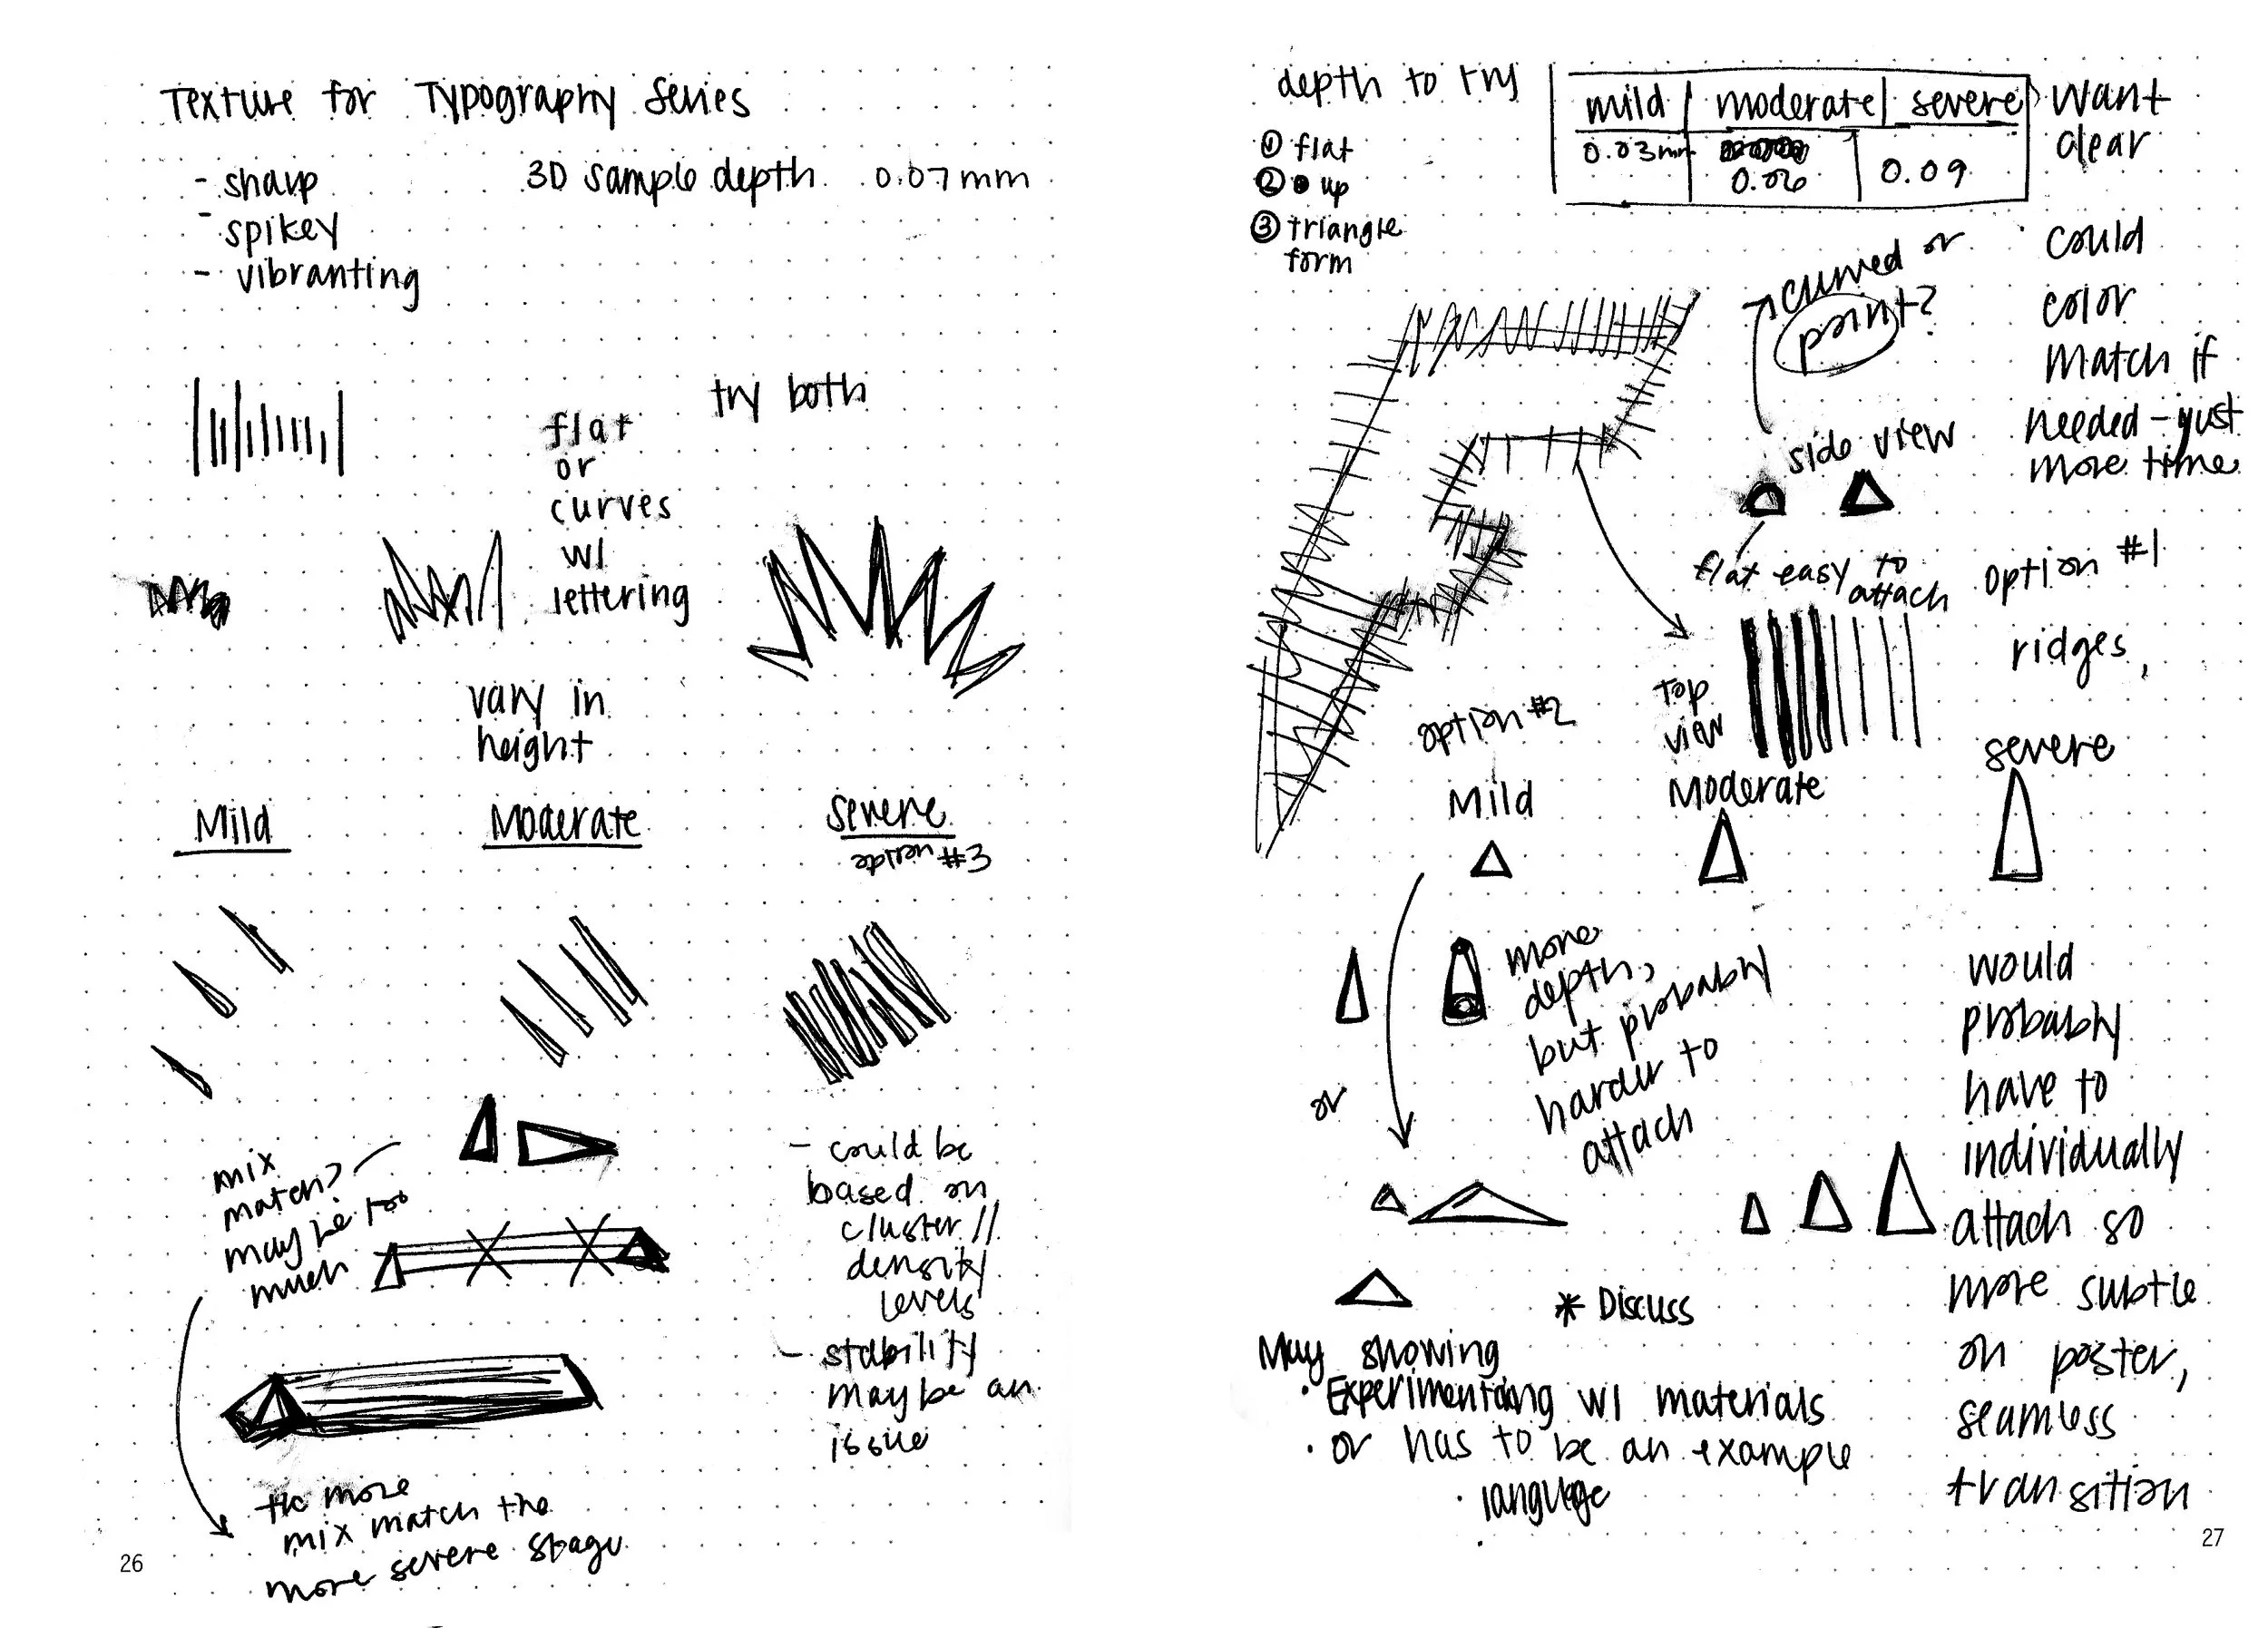 Texture for Typography Series
- sharp
- spikey
- vibranting
3D sample depth 0.07mm
try both
flat
or
curves
w/
lettering
vary in
height
Mild
Moderate
Severe
option #3
mix
match?
may be too
much
- could be
based on
cluster //
density
levels
- stability
may be an
issue
the more
mix match the
more severe stage
26
depth to try
① flat
② up
③ triangle
form
mild moderate severe
0.03mm 0.06 0.09
want
clear
could
color
match if
needed - just
more time
curved or
point?
side view
flat easy to
attach
option #1
ridges,
top
view
option #2
Mild
Moderate
severe
more
depth,
but probably
harder to
attach
or
would
probably
have to
individually
attach so
more subtle
on poster,
seamless
transition
* Discuss
May showing
• Experimenting w/ materials
• or has to be an example
• language
27